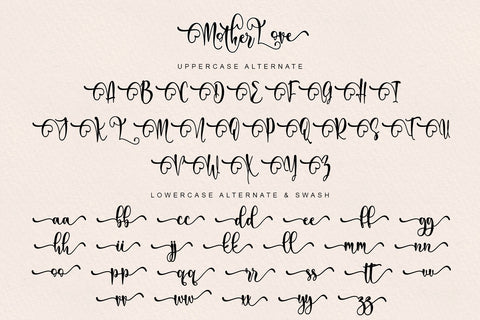 Mother Love
UPPERCASE ALTERNATE
A B C D E F G H I
J K L M N O P Q R S T U
V W X Y Z
LOWERCASE ALTERNATE & SWASH
aa bb cc dd ee ff gg
hh ii jj kk ll mm nn
oo pp qq rr ss tt uu
vv ww xx yy zz